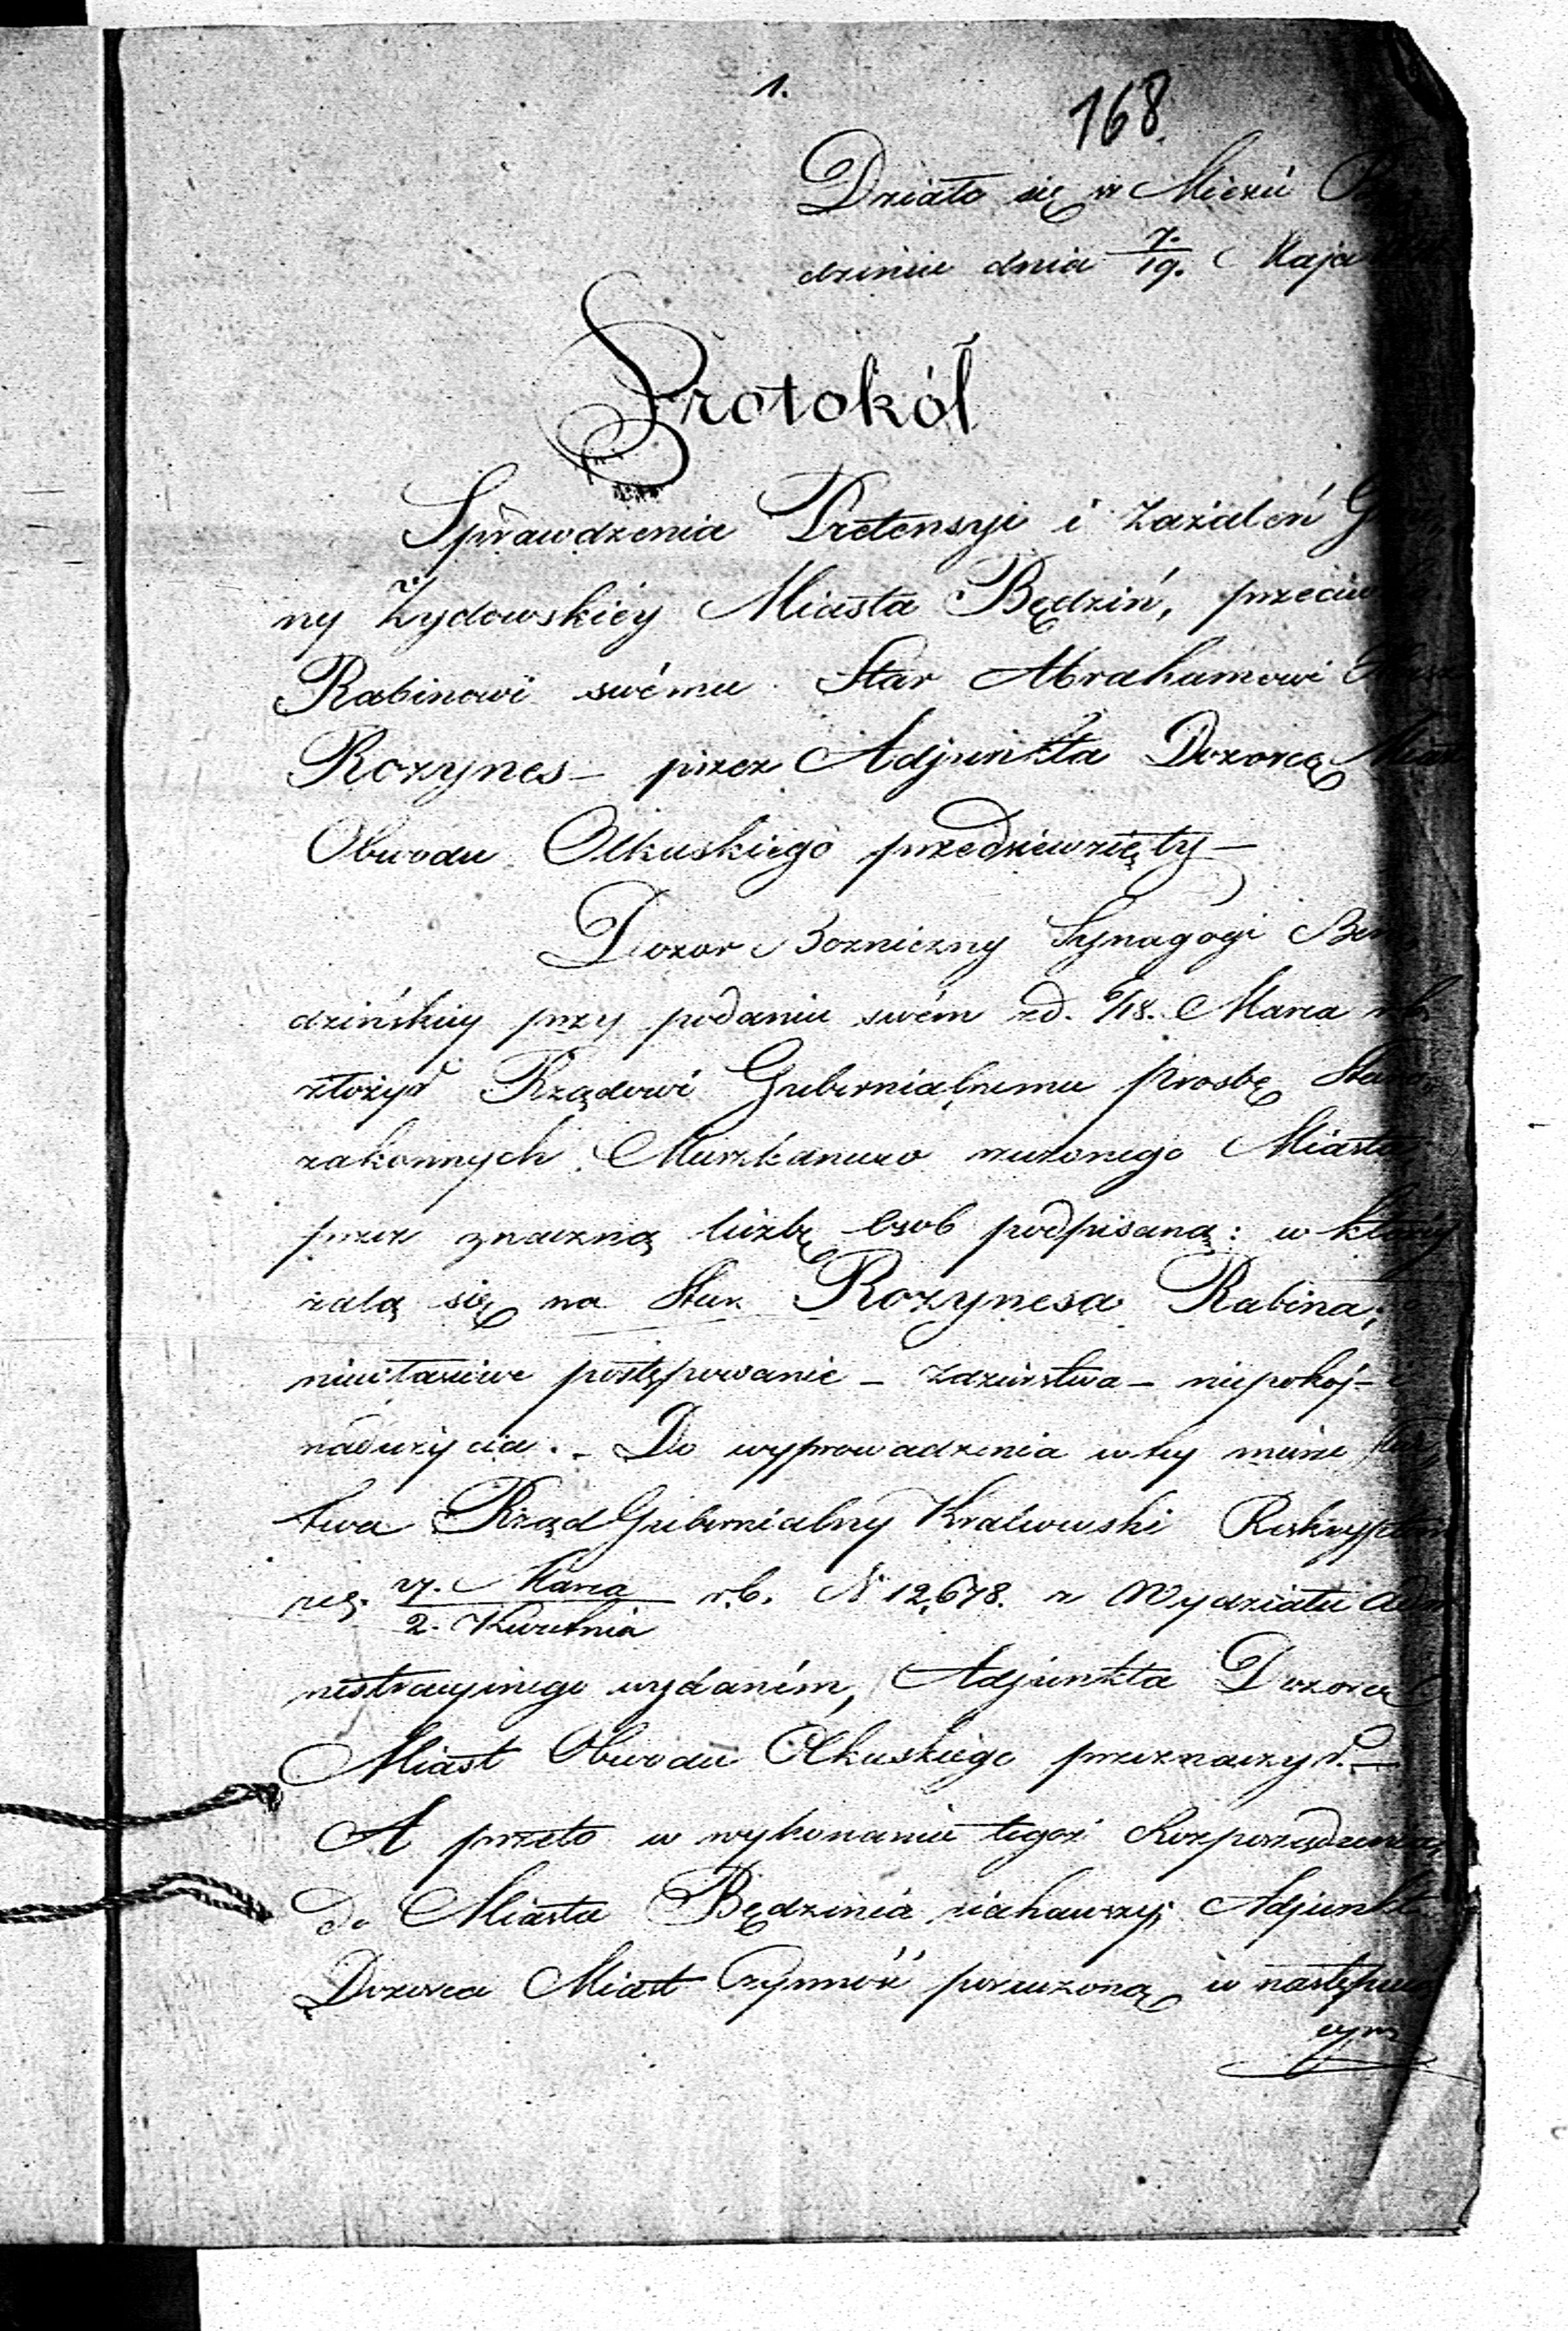 1.
168.
Działo się w Mieście
dzinie dnia 7./19. Maja
Protokół
Sprawdzenia Pretensyi i Zażaleń
ny Żydowskiéy Miasta Będzin, przeciwko
Rabinowi swému Star Abrahamowi
Rozynes – przez Adjunkta Dozorcę Miast
Obwodu Olkuskiego przedsięwzięty –
Dozor Bożniczny Synagogi Ben
dzińskiey przy podaniu swém z d. 6/18. Marca r b.
złożył Rządowi Gubernialnemu prosbę Staro
zakonnych Mieszkancow rzeczonego Miasta
przez znaczną liczbę Osob podpisaną: w którey
żalą się na Star. Rozynesa Rabina,
niewłaściwe postępowanie – zdzierstwa – niepokój – i
nadużycia. – Do wyprowadzenia w tey mierze
twa Rząd Gubernialny Krakowski Reskryptem
27. Marca/2. Kwietnia r.b. N 12,678. z Wydziału Adm
nistracyinego wydaném, Adjunkta Dozorcę
Miast Obwodu Olkuskiego przeznaczył. –
A przeto w wykonaniu tegoż Rozporządzenia,
Do Miasta Będzinia ziechawszy Adjunkt
Dozorca Miast Czynność poruczoną w następują
cym